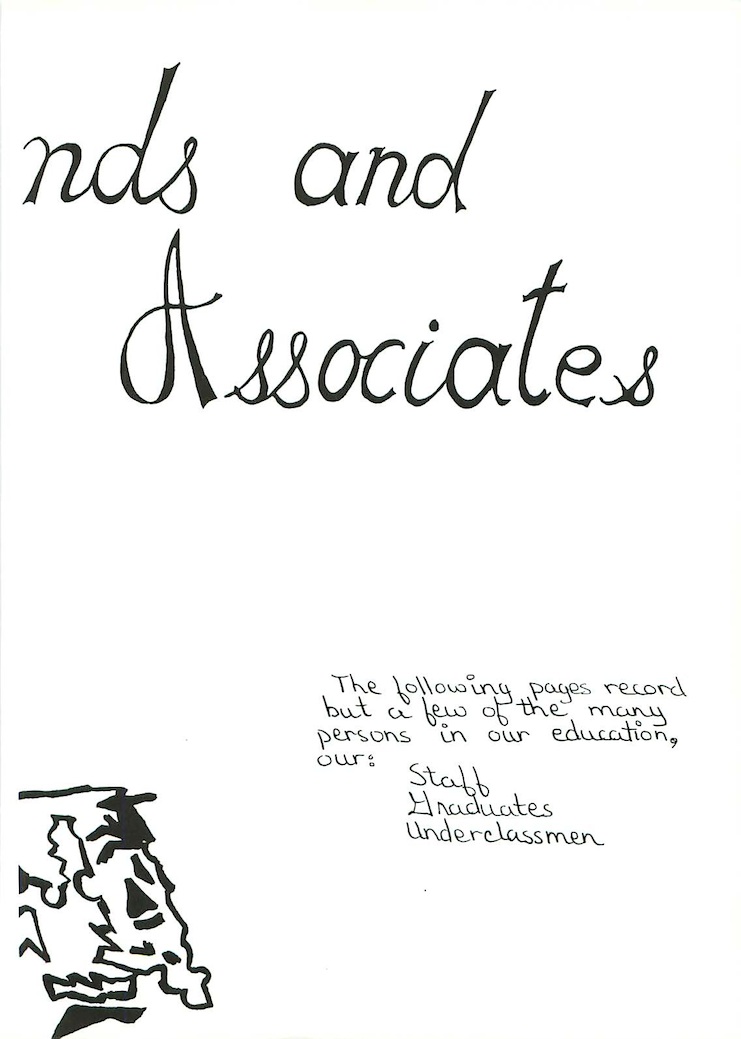 nds and
Associates
The following pages record
but a few of the many
persons in our education,
our:
Staff
Graduates
Underclassmen